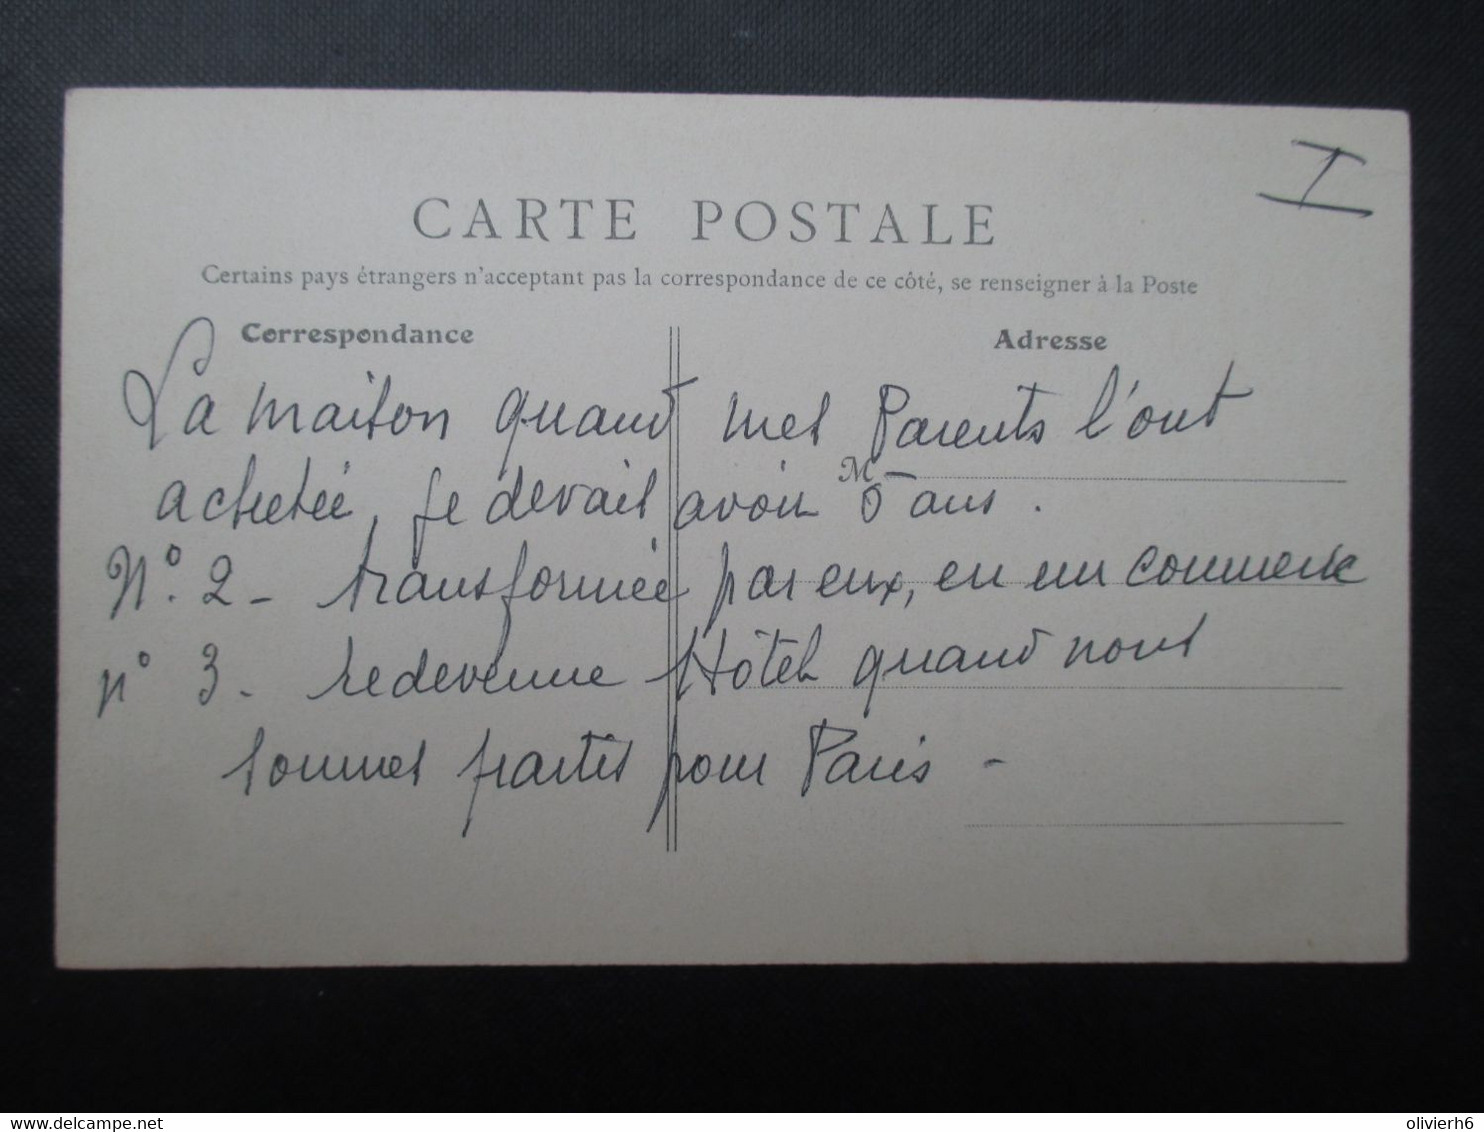 I
CARTE POSTALE
Certains pays étrangers n'acceptant pas la correspondance de ce côté, se renseigner à la Poste
Correspondance
Adresse
La maison quand mes Parents l'ont
achetée, je devais avoir 5 ans.
M
N°. 2 - transformée par eux, en un commerce
n° 3 - redevenue Hôtel quand nous
sommes partis pour Paris -
delcampe.net
olivierh6